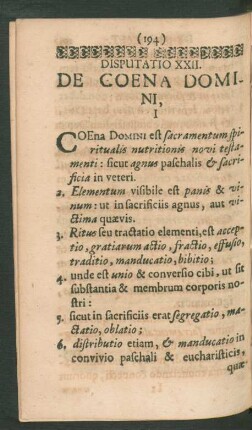 (194)
DISPUTATIO XXII.
DE COENA DOMI-
NI,
I
COEna DOMINI est sacramentum spi-
ritualis nutritionis novi testa-
menti: sicut agnus paschalis & sacri-
ficia in veteri.
2. Elementum visibile est panis & vi-
num: ut in sacrificiis agnus, aut vi-
ctima quævis.
3. Ritus seu tractatio elementi, est accep-
tio, gratiarum actio, fractio, effusio,
traditio, manducatio, bibitio;
4. unde est unio & conversio cibi, ut sit
substantia & membrum corporis no-
stri:
5. sicut in sacrificiis erat segregatio, ma-
ctatio, oblatio;
6. distributio etiam, & manducatio in
convivio paschali & eucharisticis,
quæ